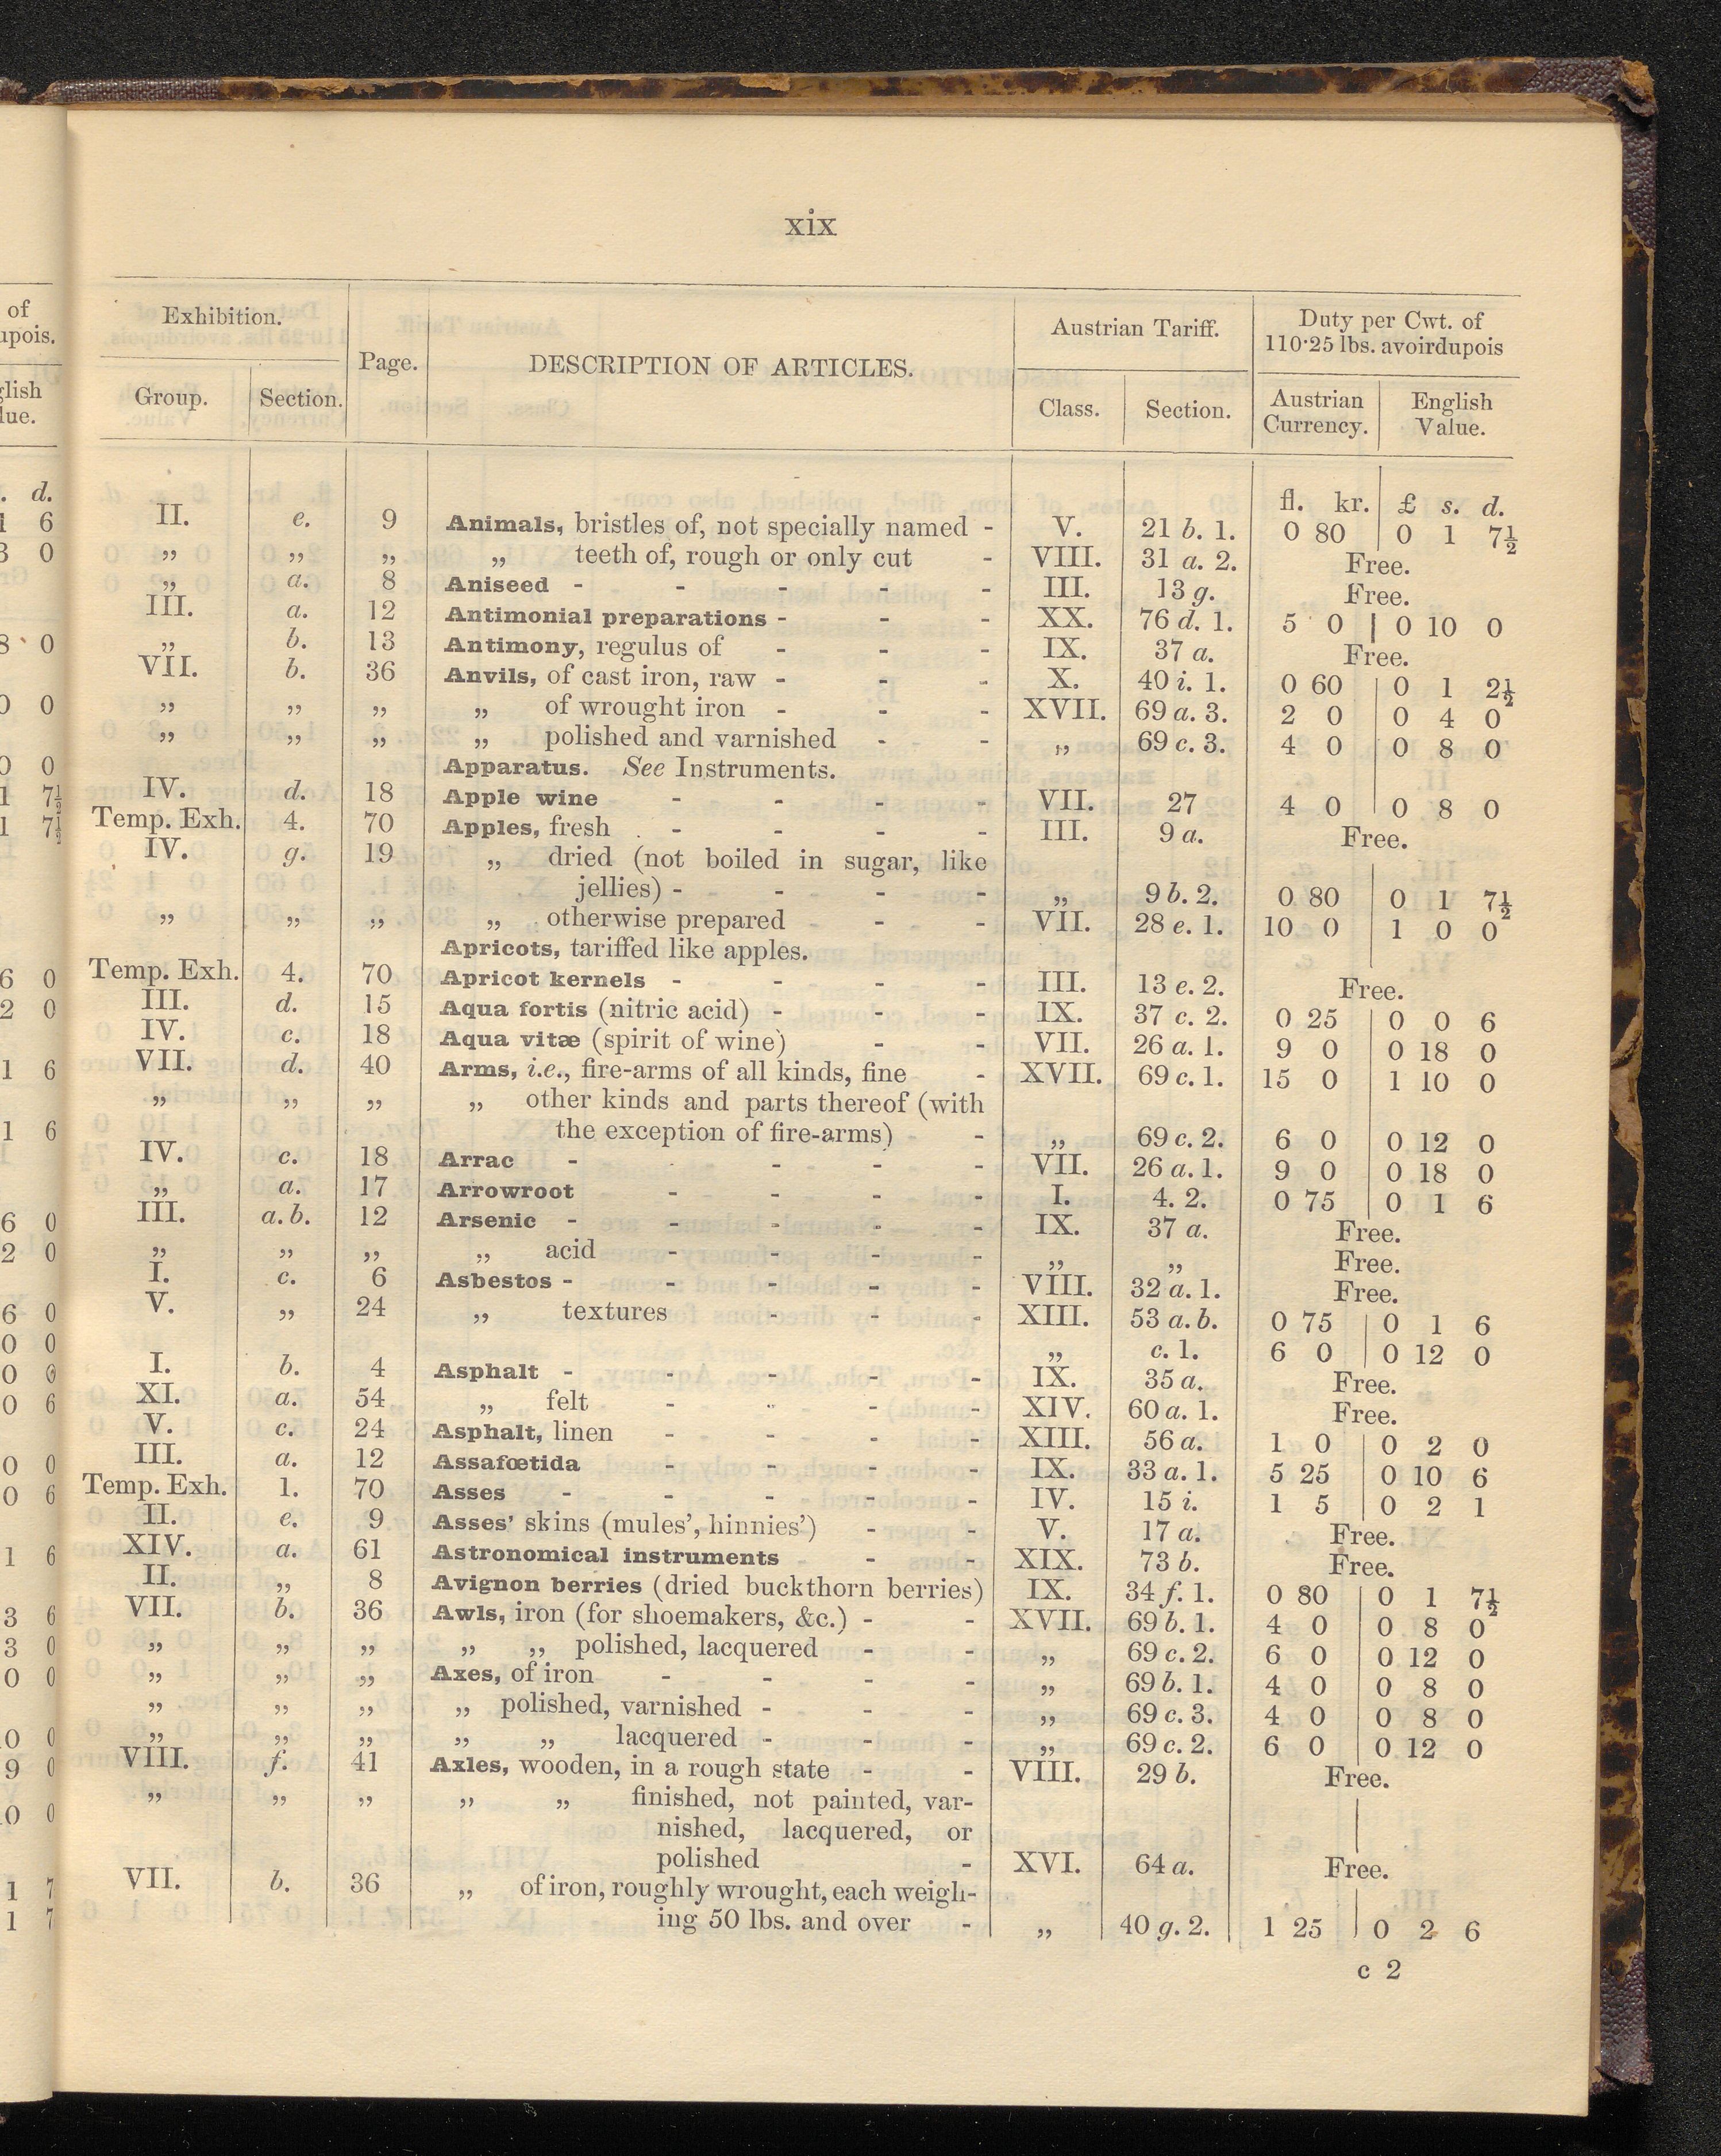 xix
Exhibition. Page. DESCRIPTION OF ARTICLES. Austrian Tariff. Duty per Cwt. of 110·25 lbs. avoirdupois
Group. Section. Class. Section. Austrian Currency. English Value.
fl. kr. £ s. d.
II. e. 9 Animals, bristles of, not specially named - V. 21 b. 1. 0 80 0 1 7½
„ „ „ „ teeth of, rough or only cut - VIII. 31 a. 2. Free.
„ a. 8 Aniseed - - - - - III. 13 g. Free.
III. a. 12 Antimonial preparations - - - XX. 76 d. 1. 5 0 0 10 0
„ b. 13 Antimony, regulus of - - - IX. 37 a. Free.
VII. b. 36 Anvils, of cast iron, raw - - - X. 40 i. 1. 0 60 0 1 2½
„ „ „ „ of wrought iron - - - XVII. 69 a. 3. 2 0 0 4 0
„ „ „ „ polished and varnished - - „ 69 c. 3. 4 0 0 8 0
Apparatus. See Instruments.
IV. d. 18 Apple wine - - - - VII. 27 4 0 0 8 0
Temp. Exh. 4. 70 Apples, fresh - - - - III. 9 a. Free.
IV. g. 19 „ dried (not boiled in sugar, like
jellies) - - - - „ 9 b. 2. 0 80 0 1 7½
„ „ „ „ otherwise prepared - - VII. 28 e. 1. 10 0 1 0 0
Apricots, tariffed like apples.
Temp. Exh. 4. 70 Apricot kernels - - - - III. 13 e. 2. Free.
III. d. 15 Aqua fortis (nitric acid) - - - IX. 37 c. 2. 0 25 0 0 6
IV. c. 18 Aqua vitæ (spirit of wine) - - VII. 26 a. 1. 9 0 0 18 0
VII. d. 40 Arms, i.e., fire-arms of all kinds, fine - XVII. 69 c. 1. 15 0 1 10 0
„ „ „ „ other kinds and parts thereof (with
the exception of fire-arms) - „ 69 c. 2. 6 0 0 12 0
IV. c. 18 Arrac - - - - VII. 26 a. 1. 9 0 0 18 0
„ a. 17 Arrowroot - - - - I. 4. 2. 0 75 0 1 6
III. a. b. 12 Arsenic - - - - - IX. 37 a. Free.
„ „ „ „ acid - - - - „ „ Free.
I. c. 6 Asbestos - - - - - VIII. 32 a. 1. Free.
V. „ 24 „ textures - - - XIII. 53 a. b. 0 75 0 1 6
„ c. 1. 6 0 0 12 0
I. b. 4 Asphalt - - - - - IX. 35 a. Free.
XI. a. 54 „ felt - - - - XIV. 60 a. 1. Free.
V. c. 24 Asphalt, linen - - - - XIII. 56 a. 1 0 0 2 0
III. a. 12 Assafœtida - - - - IX. 33 a. 1. 5 25 0 10 6
Temp. Exh. 1. 70 Asses - - - - - IV. 15 i. 1 5 0 2 1
II. e. 9 Asses' skins (mules', hinnies') - - V. 17 a. Free.
XIV. a. 61 Astronomical instruments - - XIX. 73 b. Free.
II. „ 8 Avignon berries (dried buckthorn berries) IX. 34 f. 1. 0 80 0 1 7½
VII. b. 36 Awls, iron (for shoemakers, &c.) - - XVII. 69 b. 1. 4 0 0 8 0
„ „ „ „ „ polished, lacquered - - „ 69 c. 2. 6 0 0 12 0
„ „ „ Axes, of iron - - - - „ 69 b. 1. 4 0 0 8 0
„ „ „ „ polished, varnished - - - „ 69 c. 3. 4 0 0 8 0
„ „ „ „ „ lacquered - - - „ 69 c. 2. 6 0 0 12 0
VIII. f. 41 Axles, wooden, in a rough state - - VIII. 29 b. Free.
„ „ „ „ „ finished, not painted, var-
nished, lacquered, or
polished - XVI. 64 a. Free.
VII. b. 36 „ of iron, roughly wrought, each weigh-
ing 50 lbs. and over - „ 40 g. 2. 1 25 0 2 6
c 2